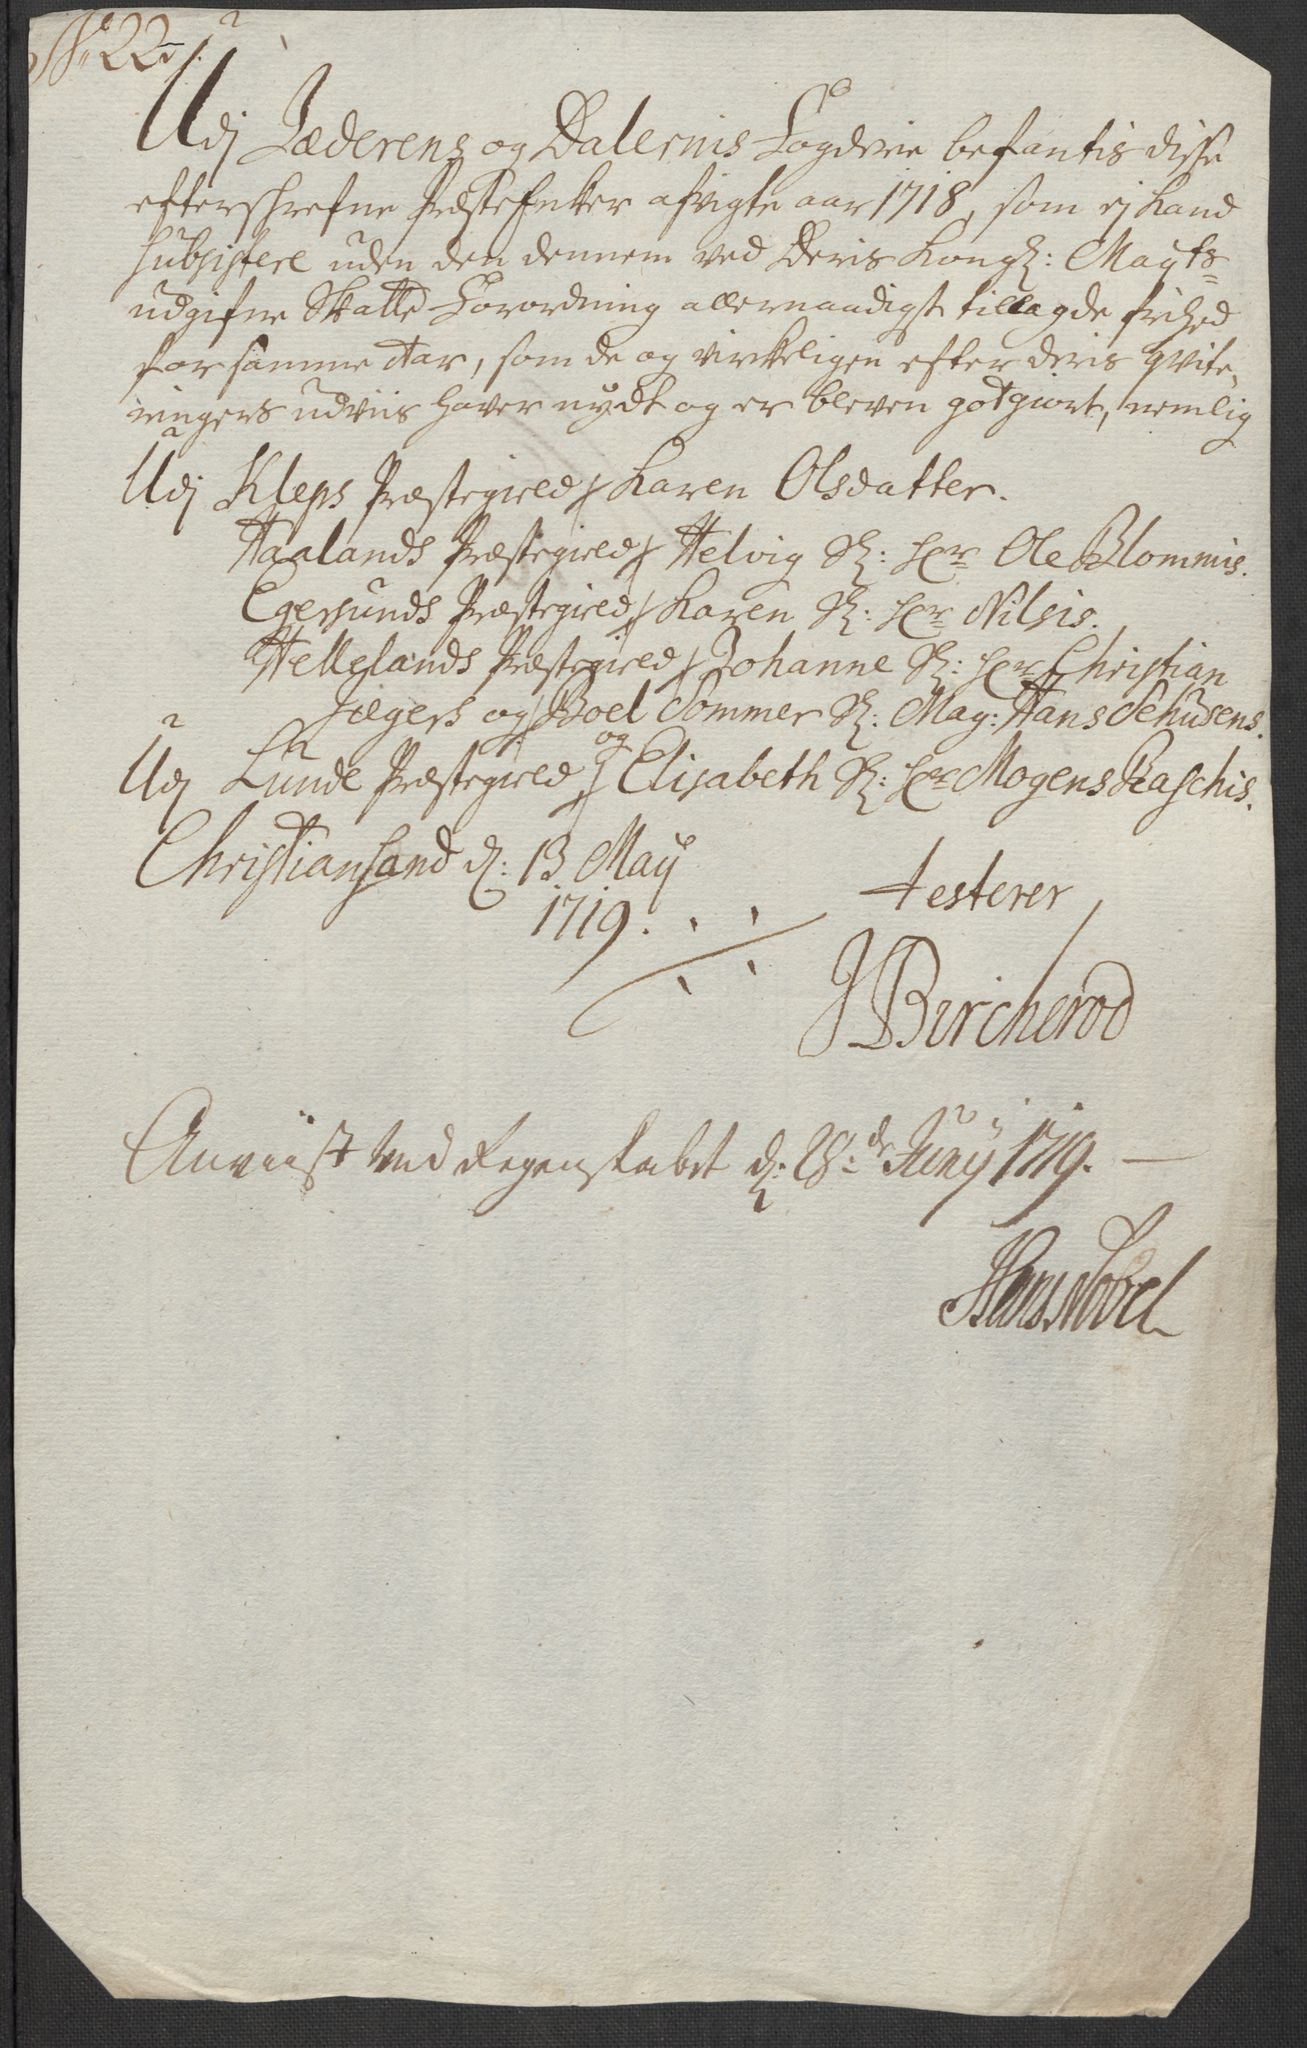 No 22
Udj Jæderens og Dalernis Fogderie befantis disse
efterschrefne Præste Enker afvigte aar 1718, som ej kand
subsistere uden den dennem ved Deris Kongl: Mayts
udgifne Skatte Forordning allernaadigst tillagde frihed
for samme Aar, som de og virkeligen efter deris qvite„
ringers udviis hafver nydt og er bleven godtgiort, nemlig
Udj Kleps Præstegield / Karen Olsdatter.
Haalands Præstegield / Helvig Sl: Hr Ole Blommis.
Egersunds Præstegield / Karen Sl: Hr Nilsis.
Hellelands Præstegield / Johanne Sl: Hr Christian
Jægers og / Boel Sommer Sl: Mag: Hans Schusens.
og
Udj Lunde Præstegield / Elisabeth Sl: Hr Mogens Raschis.
Christiansand d: 13 May
1719.
testerer
J Bircherod
Anviist ved Regenskabet d: 28de Junij 1719.
Hans Nobel